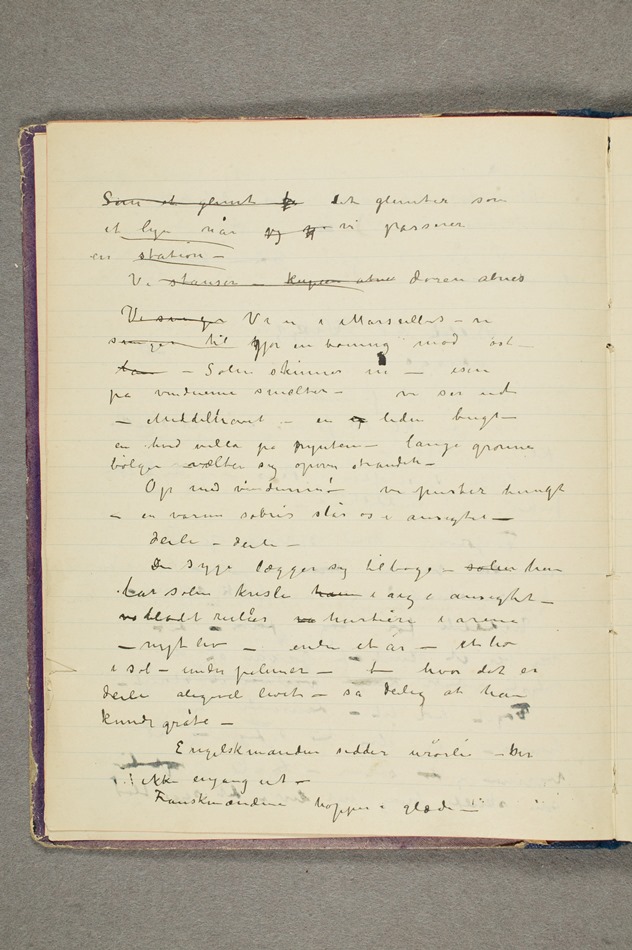 Som et glimt det glimter som
et lyn når jeg vi passerer
en station –
Vi stanser – kupeen åbnes døren åbnes
Vi svinger Vi er i Marseilles – vi
svinger til gjør en bøining mod øst
han – Solen skinner in – isen
på vinduerne smelter – vi ser ud
– Middelhavet – en liden bugt –
en hvid villa på pynten – lange grønne
bølger vælter sig opover stranden –
Op med vinduerne! vi puster tungt
– en varm sobris slår os i ansigtet –
deile – deile –
Den syge lægger sig tilbage – solen han
lar solen krisle ham i sig i ansigtet –
blodt ruller hurtigere i årene
– nyt liv – endnu et år – et liv
i sol – under palmer – hvor det er
deile alligevel livet – så deilig at han
kunde gråte –
Engelskmanden sidder urørlig – ser
ikke engang ut –
Franskmændene hopper i glæde –